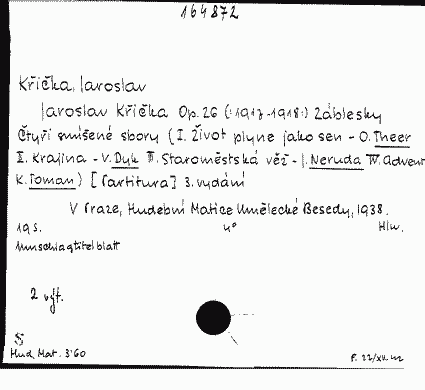 164872
Křička, Jaroslav
Jaroslav Křička Op. 26 (:1917-1918:) Záblesky
Čtyři smíšené sbory (I. Život plyne jako sen - O. Theer
II. Krajina - V. Dyk III. Staroměstská věž - J. Neruda IV. Advent
K. Toman) [Partitura] 3. vydání
V Praze, Hudební Matice Umělecké Besedy, 1938.
19 s. 4° Hlw.
Umschlagtitelblatt
2 výt.
Hud. Mat. 3'60